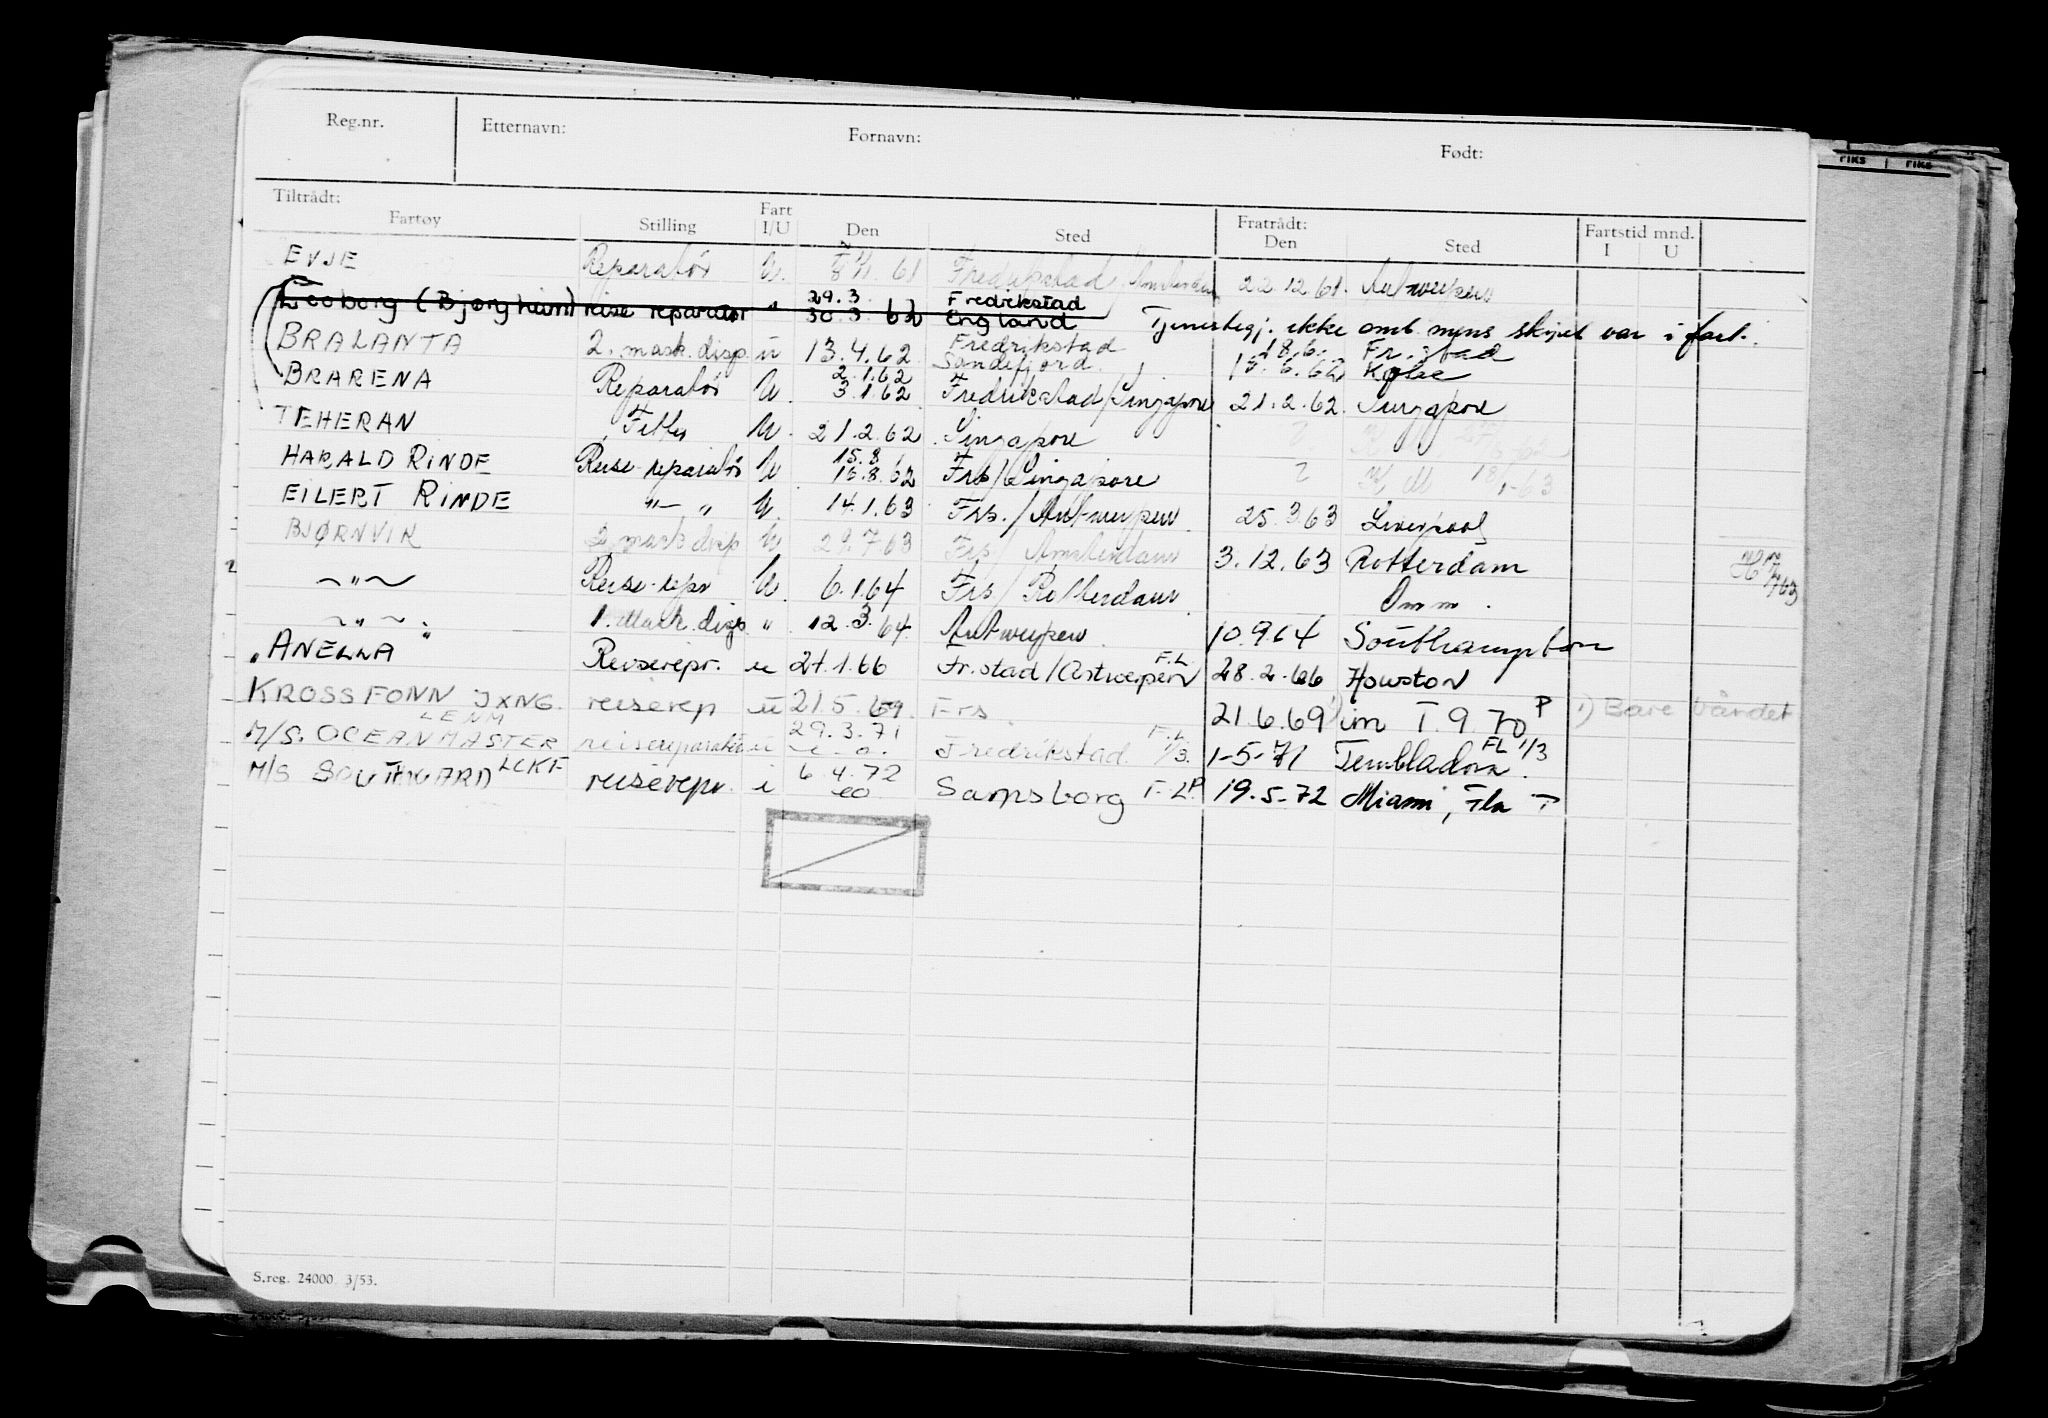 FIKS FIKS
Reg.nr. Etternavn: Fornavn: Født:
Tiltrådt:
Fartøy Stilling Fart I/U Den Sted Fratrådt: Den Sted Fartstid mnd. I U
EVJE Reparatør U. 61 Fredrikstad / Amsterdam 22.12.61. Antwerpen
(Bjørgheim) reise reparatør " 29.3. 30.3.62 Fredrikstad England Tjenestegj. ikke omb. mens skipet var i fart.
BRALANTA 2. mask. disp. u 13.4.62 Fredrikstad Sandefjord. 18.6. 15.6.62 Fr.stad Kobe
BRARENA Reparatør U. 2.1.62 3.1.62 Fredrikstad/Singapore 21.2.62. Singapore
TEHERAN Fitter U. 21.2.62 Singapore ?
HARALD RINDE Reise-reparatør U 15.8. 16.8.62 Frs/Singapore ? 18/1-63
EILERT RINDE "— " U. 14.1.63 Frs./Antwerpen 25.3.63 Liverpool
BJØRNVIK 2. mask disp U 29.7.63 Frs/ Amsterdam 3.12.63 Rotterdam
~"~ Reise-repr U. 6.1.64 Frs/ Rotterdam Omm.
~"~. 1. Mask. disp " 12.3.64 Antwerpen 10.9.64 Southampton
"ANELLA" Reiserepr. u 27.1.66 Fr.stad/Antwerpen F.L. 28.2.66 Houston
KROSSFONN JXNG. reiserep u 21.5.69. Frs. 21.6.69 1) im T 9.70 P 1) Bare båndet
M/S. OCEANMASTER LENM reisereparatør u 29.3.71 Fredrikstad F.L. 1/3. 1-5-71 Tembladora. FL 1/3
M/S SOUTHWARD LCKF reiserepr. i 6.4.72 Sarpsborg F.L.P 19.5.72 Miami, Fla P
S.reg. 24000 3/53.